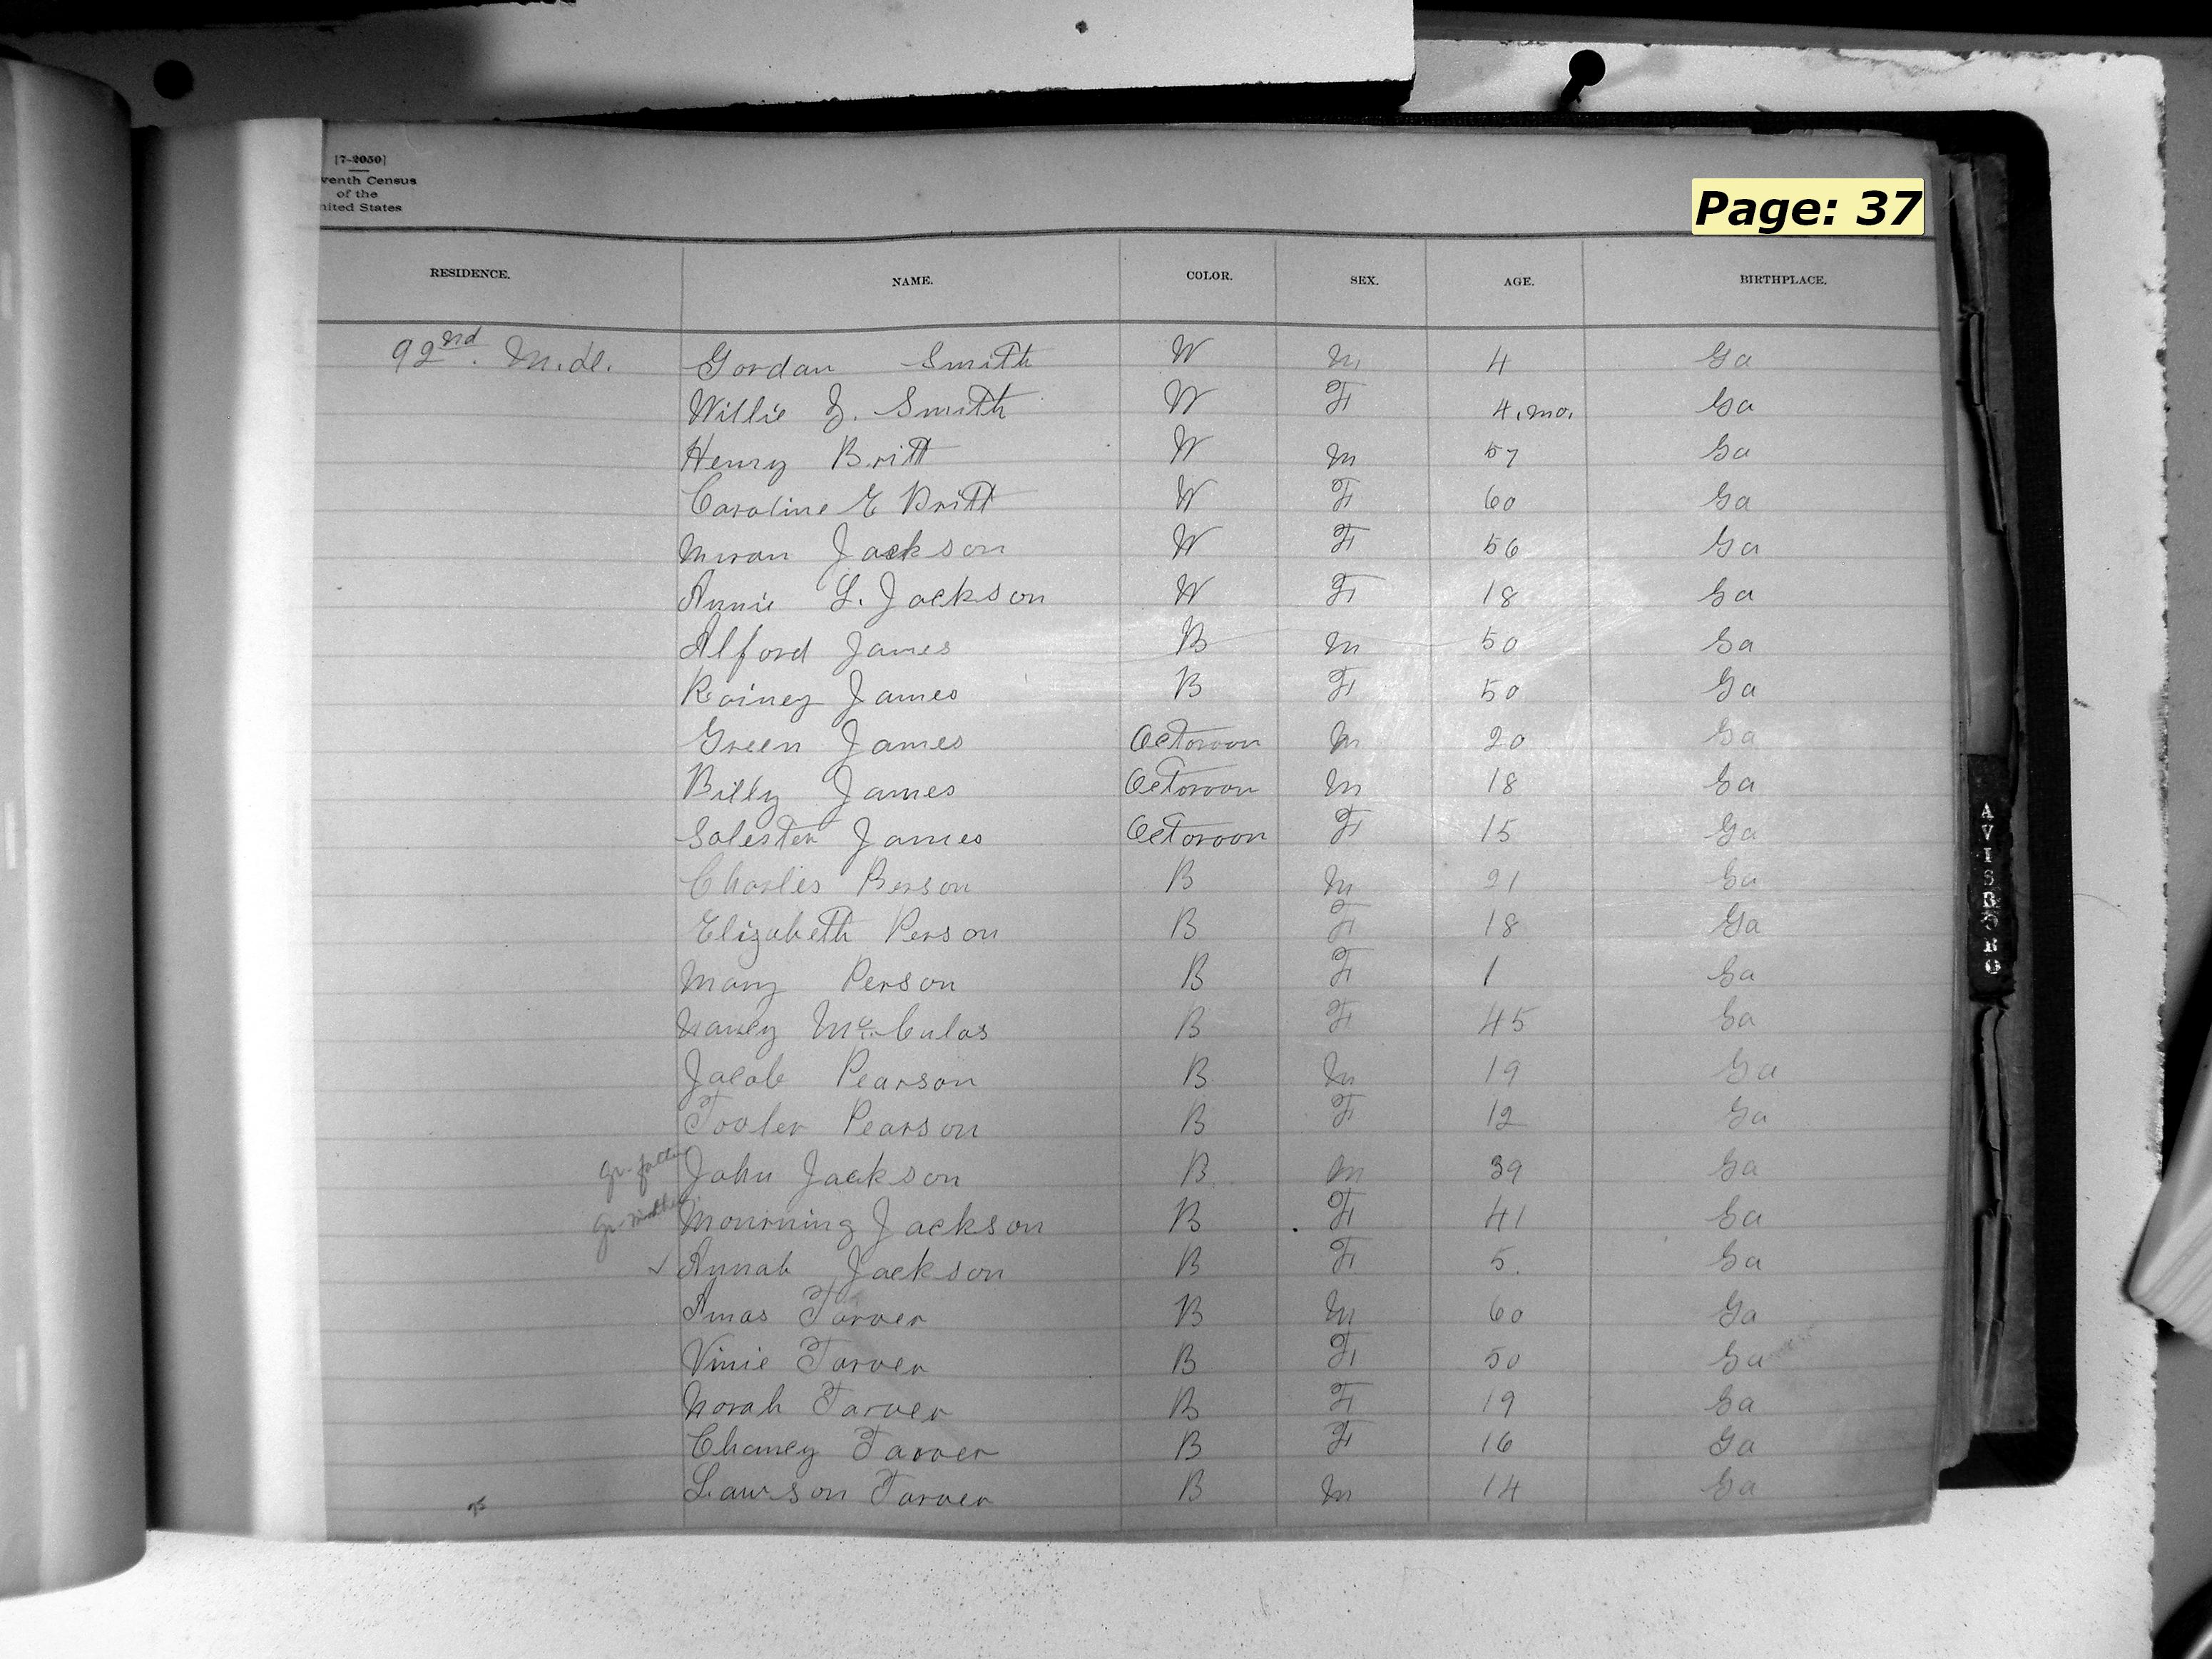 [7-2050]
venth Census
of the
nited States
Page: 37
RESIDENCE. NAME. COLOR. SEX. AGE. BIRTHPLACE.
92nd. M.d. Gordan Smith W M 4 Ga
Willie J. Smith W F 4.mo. Ga
Henry Britt W M 57 Ga
Caroline E Britt W F 60 Ga
Jackson W F 56 Ga
Annie L. Jackson W F 18 Ga
Alford James B M 50 Ga
Rainey James B F 50 Ga
Green James Octoroon M 20 Ga
Billy James Octoroon M 18 Ga
Salester James Octoroon F 15 Ga
Charlies Person B M 21 Ga
Elizabeth Person B F 18 Ga
Mary Person B F 1 Ga
Nancy Mc.Culas B F 45 Ga
Jacob Pearson B M 19 Ga
Pearson B F 12 Ga
Gr-father John Jackson B M 39 Ga
Gr-mother Mourning Jackson B F 41 Ga
✓ Annah Jackson B F 5. Ga
Amas Tarver B M 60 Ga
Vinie Tarver B F 50 Ga
Norah Tarver B F 19 Ga
Chaney Tarver B F 16 Ga
Lawson Tarver B M 14 Ga
AVISBORO